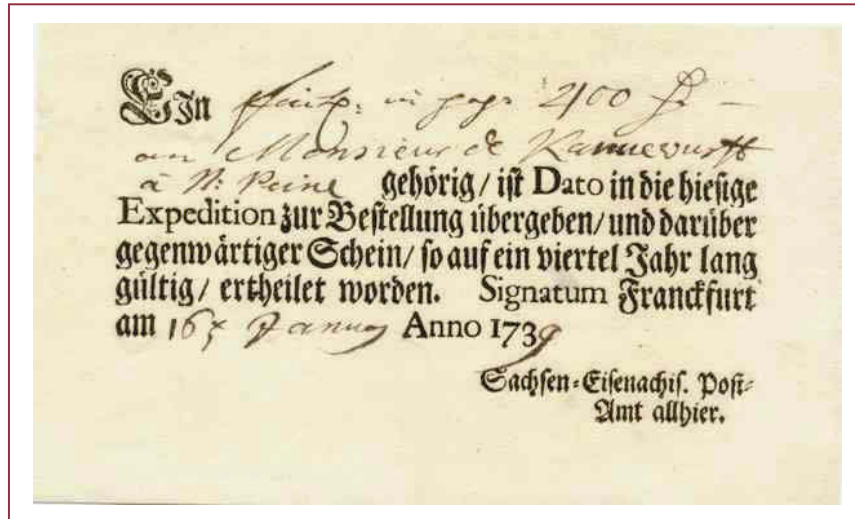 Ein 2100 f
an Monsieur de Kannewurff
à N: Peine gehörig / ist Dato in die hiesige
Expedition zur Bestellung übergeben / und darüber
gegenwärtiger Schein / so auf ein viertel Jahr lang
gültig / ertheilet worden. Signatum Franckfurt
am 16 Anno 1739
Sachsen-Eisenachis. Post-
Amt allhier.